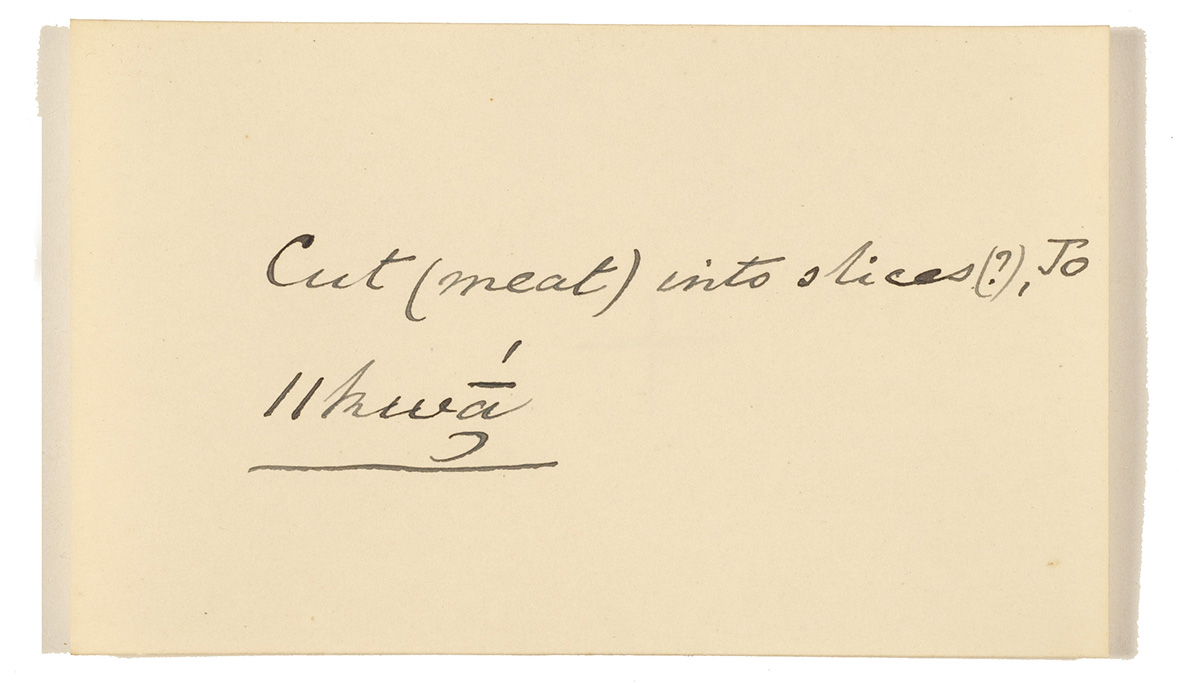 Cut (meat) into slices (?), To
ǁkwā̹́